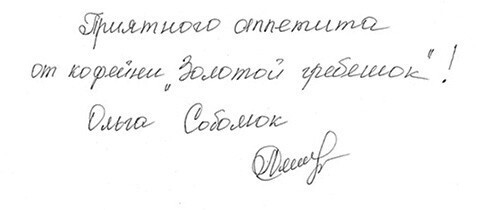 Приятного аппетита
от кофейни „Золотой гребешок"!
Ольга Собомок